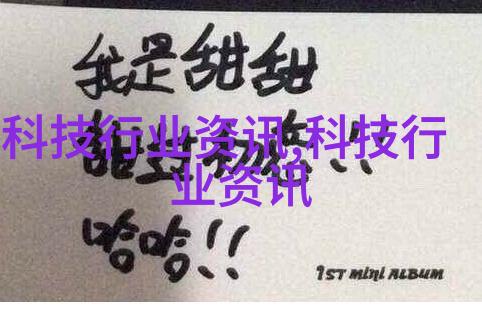 我是甜甜
科技行业资讯,科技行
业资讯
哈哈!!
1ST MINI ALBUM